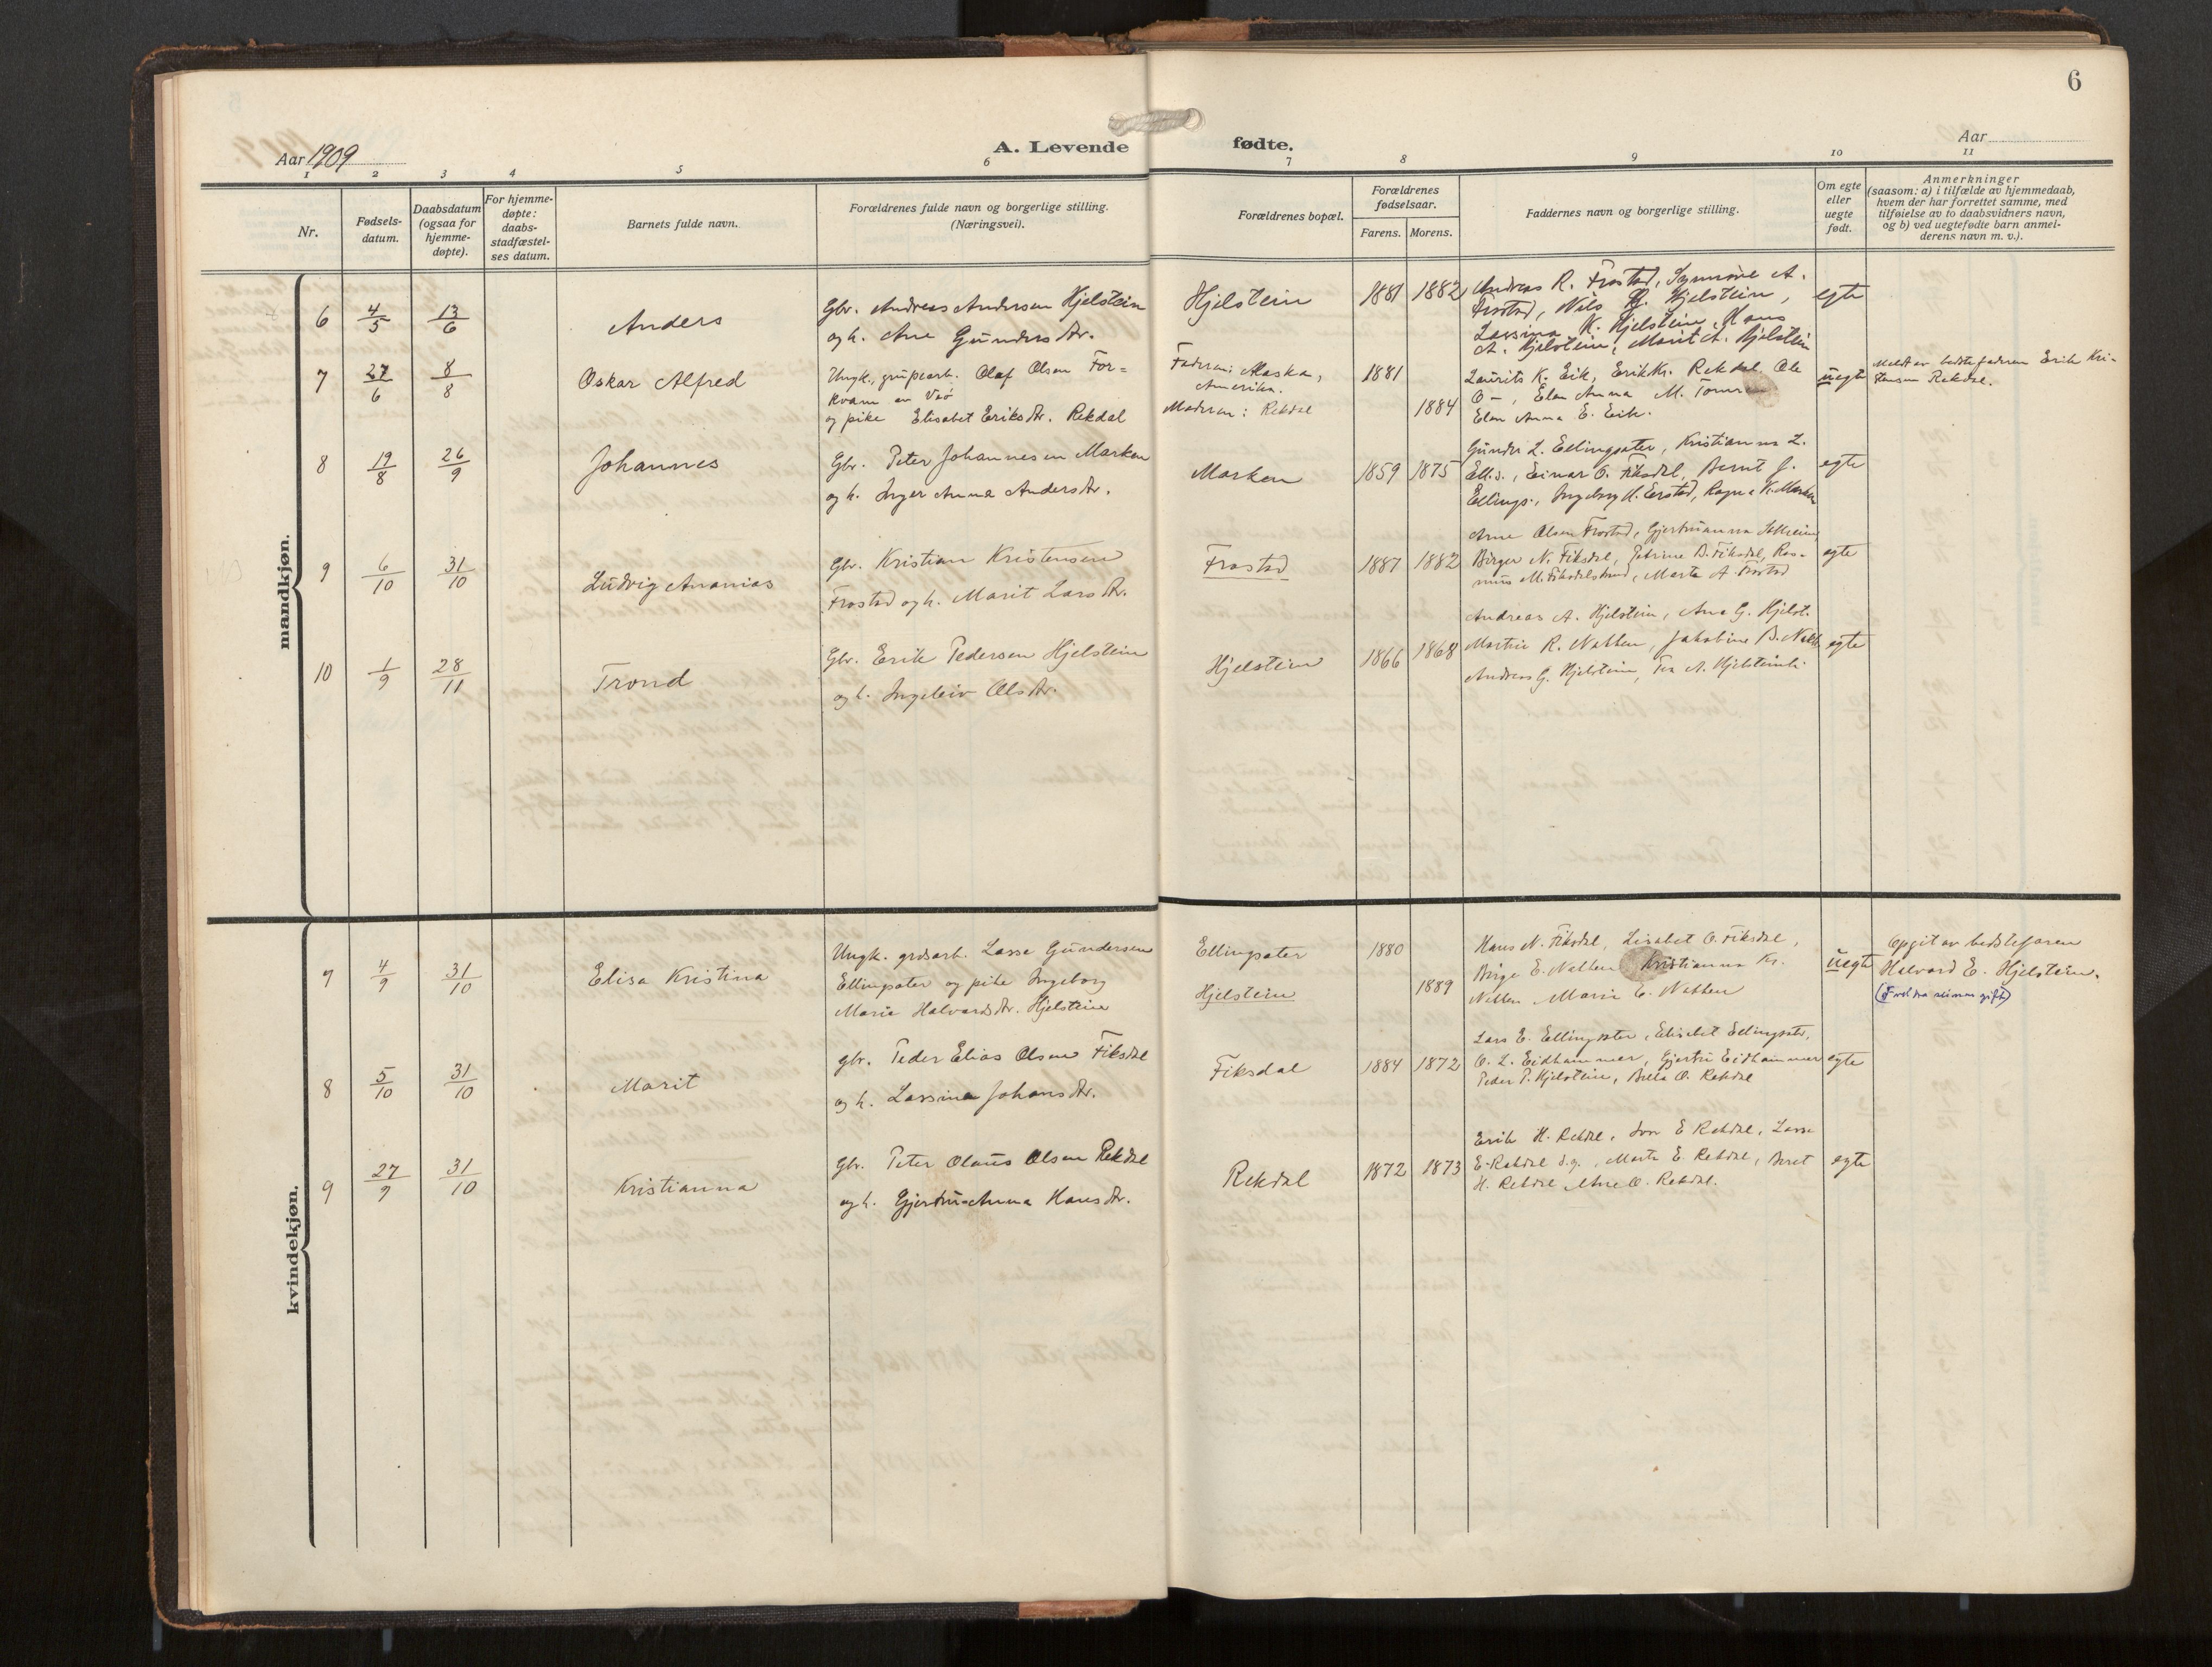 6
Aar 1909
A. Levende
fødte.
Aar
1 2 3 4 5 6 7 8 9 10 11
Nr.
Fødsels-
datum.
Daabsdatum
(ogsaa for
hjemme-
døpte).
For hjemme-
døpte:
daabs-
stadfæstel-
ses datum.
Barnets fulde navn.
Forældrenes fulde navn og borgerlige stilling.
(Næringsvei).
Forældrenes bopæl.
Forældrenes
fødselsaar.
Farens. Morens.
Faddernes navn og borgerlige stilling.
Om egte
eller
uegte
født.
Anmerkninger
(saasom: a) i tilfælde av hjemmedaab,
hvem der har forrettet samme, med
tilføielse av to daabsvidners navn,
og b) ved uegtefødte barn anmel-
derens navn m. v.).
mandkjøn.
6 4/5 13/6 Anders
Gbr. Andreas Andersen Hjelstein
og h. Ane Gundersdtr.
Hjelstein 1881 1882
Andreas R. Frostad, Synnøve A.
Frostad, Nils Hjelstein,
Lassina K. Hjelstein, Hans
A. Hjelstein, Marit A. Hjelstein
egte
7 27/6 8/8 Oskar Alfred
Ungk., grupearb. Olaf Olsen For-
kvam av Veø
og pike Elisabet Eriksdtr. Rekdal
Faderen: Alaska,
Amerika.
Moderen: Rekdal
1881
1884
Laurits K. Eik, Erik Kr. Rekdal Ole
O –, Elen Anna M.
Elen Anna E. Eik.
uegte
Meldt av bedstefaderen Erik Kri-
stensen Rekdal.
8 19/8 26/9 Johannes
Gbr. Peter Johannesen Marken
og h. Inger Anna Andersdtr.
Marken 1859 1875
Gunder L. Ellingsæter, Kristianna L.
Ell.s., Einar O. Fiksdal, Bernt J.
Ellings., Ingeborg M. Erstad, Ragna K. Marken
egte
9 6/10 31/10 Ludvig Ananias
Gbr. Kristian Kristensen
Frostad og h. Marit Larsdtr.
Frostad 1887 1882
Arne Olsen Frostad, Gjertruanna
Birger N. Fiksdal, Petrine B. Fiksdal, Ras-
mus M. Fiksdalstrand, Marta A. Frostad
egte
10 1/9 28/11 Trond
Gbr. Erik Pedersen Hjelstein
og h. Ingeleiv Olsdtr.
Hjelstein 1866 1868
Andreas A. Hjelstein, Ane G. Hjelst.
Martin R. Nakken, Jakobine B. Nakken
Andreas G. Hjelstein, A. Hjelsteinli
egte
kvindekjøn.
7 4/9 31/10 Elisa Kristina
Ungk. grdsarb. Lasse Gundersen
Ellingsæter og pike Ingeborg
Marie Halvardsdtr. Hjelstein
Ellingsæter 1880
Hjelstein 1889
Hans N. Fiksdal, Lisabet O. Fiksdal,
Birger E. Nakken Kristianna Kr.
Nakken Marie E. Nakken
uegte
Opgit av bedstefaren
Halvard E. Hjelstein.
(Foreldra seinare gift)
8 5/10 31/10 Marit
gbr. Peder Elias Olsen Fiksdal
og h. Lassina Johansdtr.
Fiksdal 1884 1872
Lars E. Ellingsæter, Elisabet Ellingsætr,
O. L. Eidhammer, Gjertru Eidhammer
Peder P. Hjelstein, O. Rekdal
egte
9 27/9 31/10 Kristianna
gbr. Peter Olaus Olsen Rekdal
og h. Gjertru-Anna Hansdtr.
Rekdal 1872 1873
Erik H. Rekdal, Jon E Rekdal, Lasse
E. Rekdal d.y., Marta E. Rekdal, Beret
H. Rekdal Ane O. Rekdal.
egte